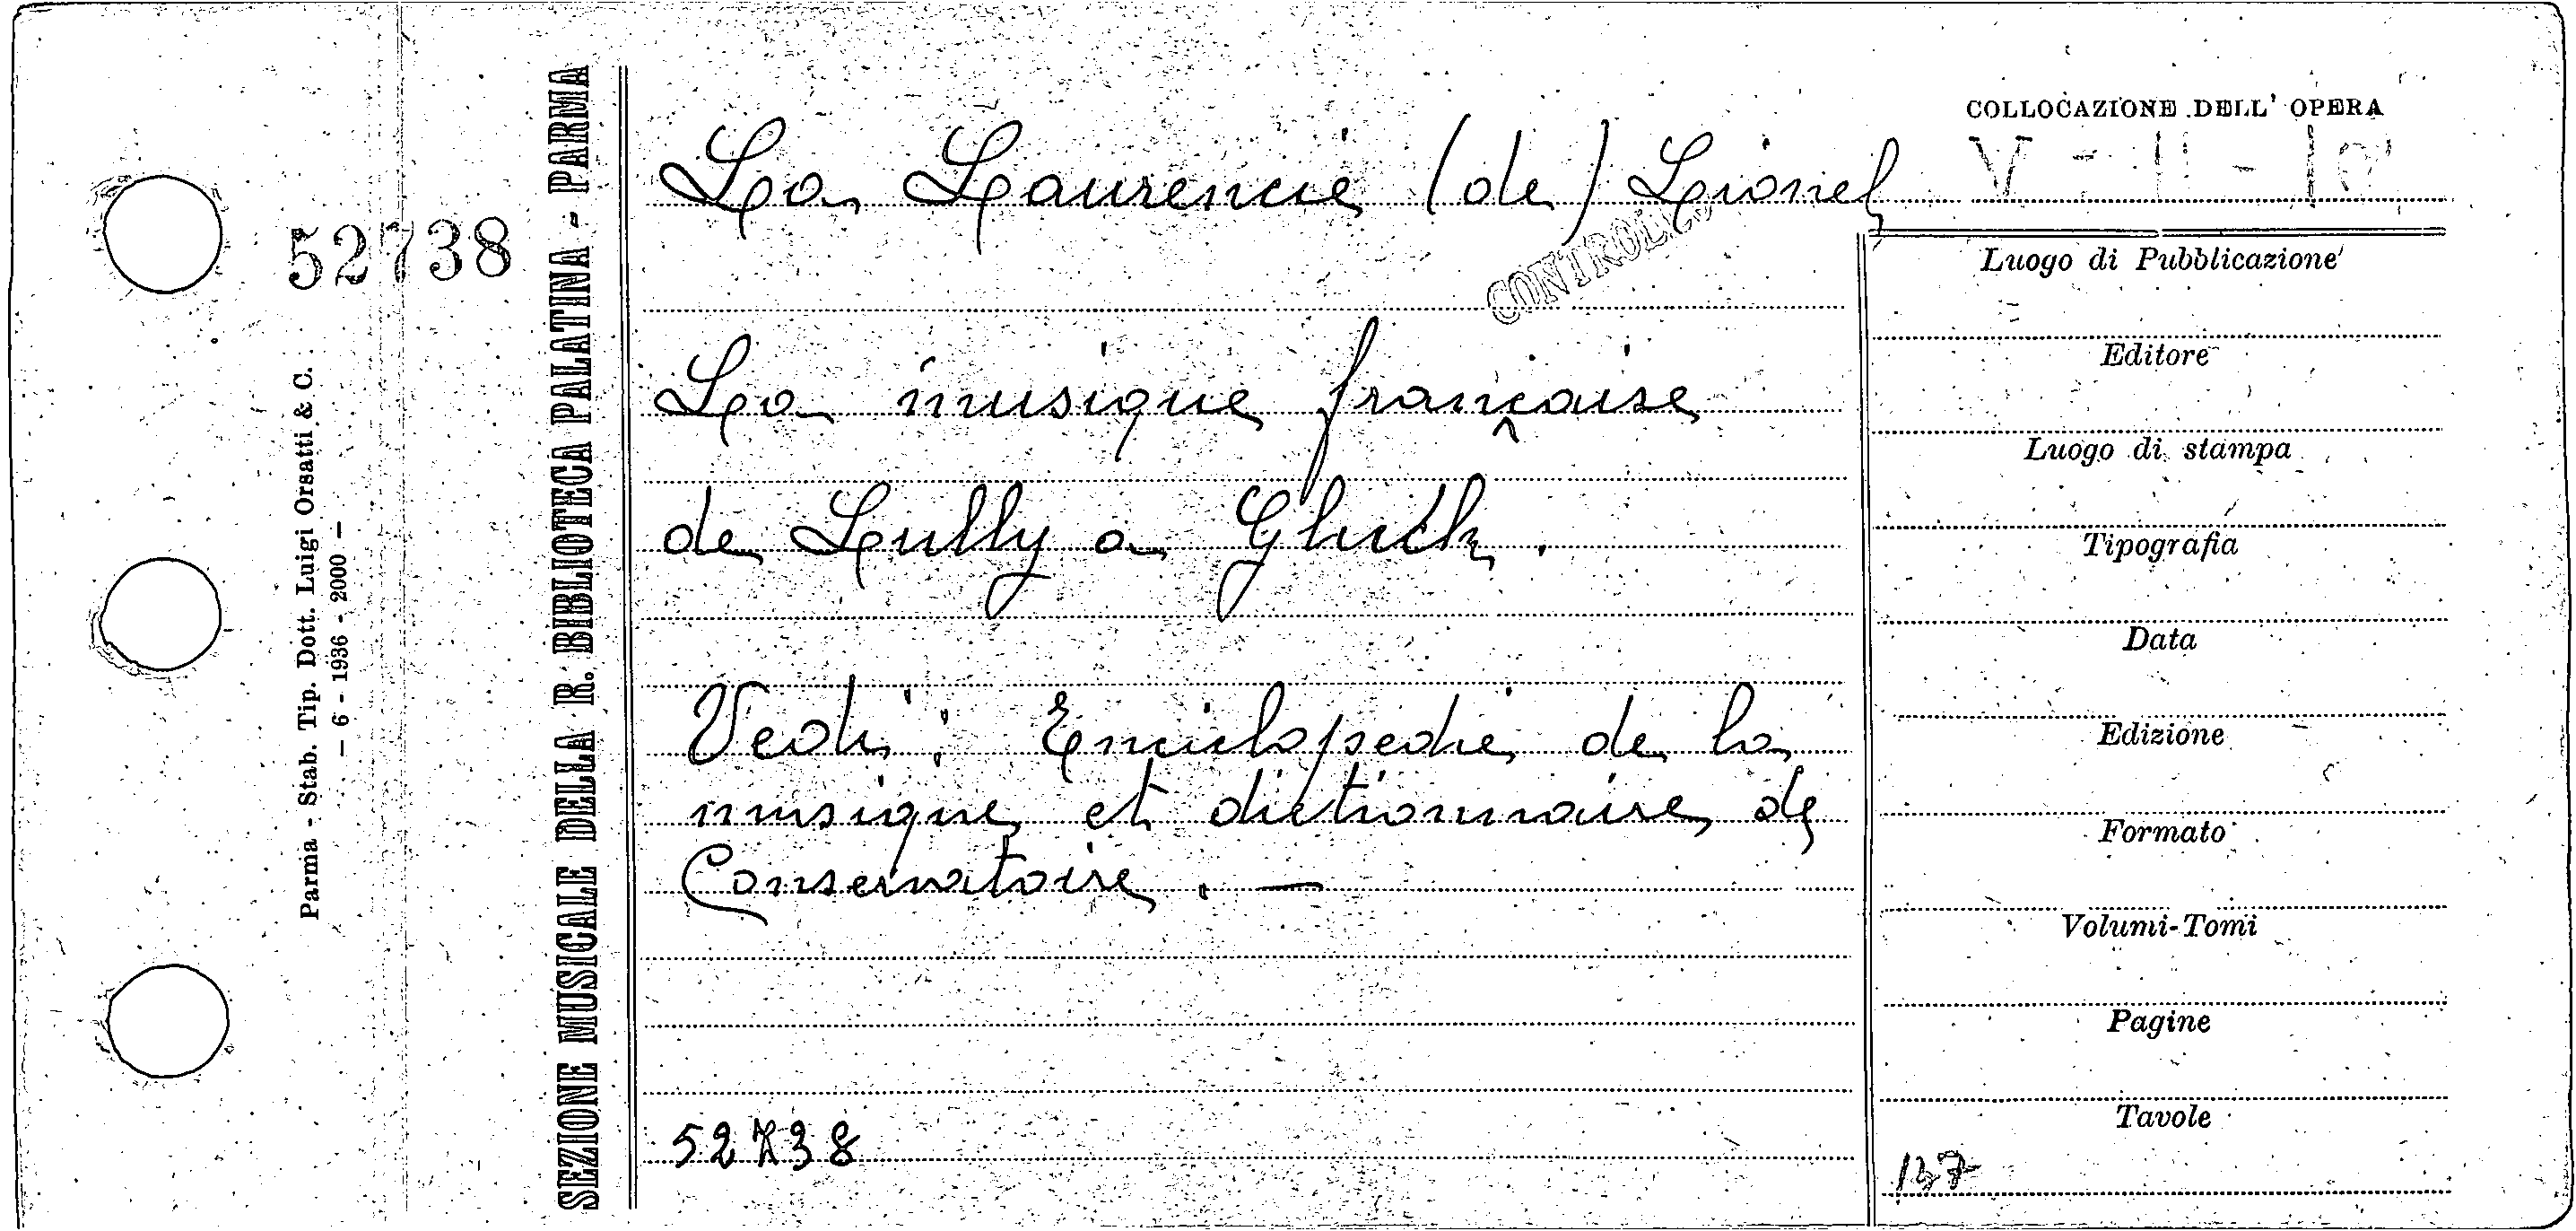 52738
Parma - Stab. Tip. Dott. Luigi Orsatti & C.
- 6 - 1936 - 2000 -
SEZIONE MUSICALE DELLA R. BIBLIOTECA PALATINA - PARMA
COLLOCAZIONE DELL' OPERA
La Laurencie (de) Lionel
La musique française
de Lully a Gluck.
Vedi: Enciclopedie de la
musique et dictionnaire de
Conservatoire. —
52738
Luogo di Pubblicazione
Editore
Luogo di stampa
Tipografia
Data
Edizione
Formato
Volumi-Tomi
Pagine
Tavole